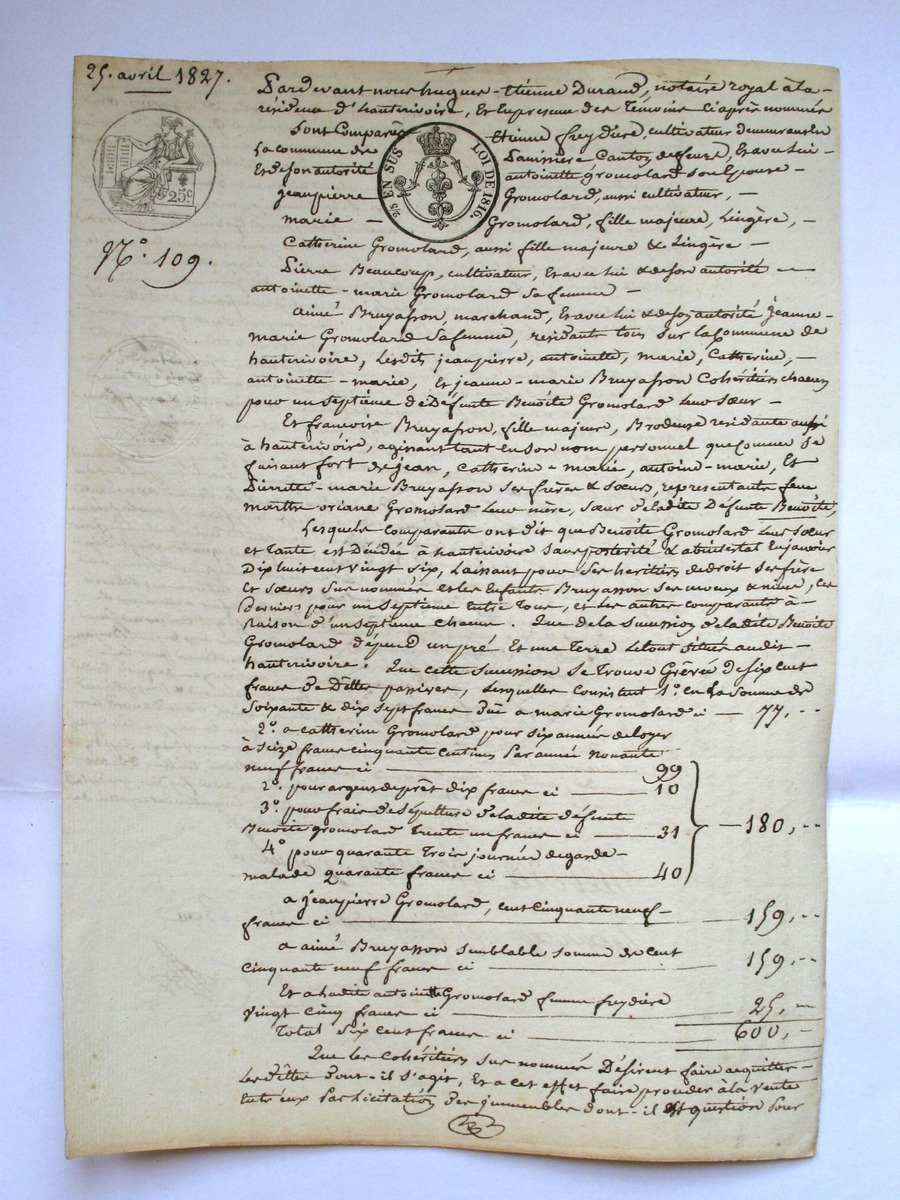 25. avril 1827.
N.o 109.
25 c
25/ EN SUS LOI DE 1816.
Pardevant nous hugues-Etienne Durand, notaire royal à la
résidence d'hauterivoire, Et En presence des Témoins ci après nommés
Sont Comparés Etienne freydiere, cultivateur demeurant En
La commune de Laussiere Canton de feurs, Et avec lui
Et de son autorité antoinette Gromolard son Epouse
jean pierre Gromolard, aussi cultivateur,
marie Gromolard, fille majeure, Lingère,
Catherine Gromolard, aussi fille majeure & Lingère
Pierre Beaucoup, cultivateur, Et avec lui & de son autorité
antoinette-marie Gromolard sa femme
aimé Bruyasson, marchand, Et avec lui & de son autorité Jeanne
marie Gromolard sa femme, residants tous sur la Commune de
hauterivoire, Lesdits jean pierre, antoinette, marie, Catherine,
antoinette-marie, Et jeanne-marie Bruyasson Cohéritiers chacun
pour un septième de Défunte Benoîte Gromolard leur sœur
Et francoise Bruyasson, fille majeure, Brodeuse residante aussi
à hauterivoire, agissant tant en son nom personnel que comme se
faisant fort de jean, Catherine-marie, antoine-marie, Et
Pierrette-marie Bruyasson ses frères & sœurs, representants feue
marthe Gromolard leur mère, sœur de ladite Défunte Benoîte,
Lesquels Comparants ont dit que Benoîte Gromolard leur sœur
et Tante est Décédée à hauterivoire sans posterité & ab intestat En janvier
Dix huit cent vingt six, Laissant pour ses heritiers de droit ses frère
Et sœurs sus nommés et les Enfants Bruyasson ses neveux & nièces, Ces
derniers pour un septième Entre tous, et les autres comparants à
Raison d'un septieme chacun. Que de la succession de ladite Benoîte
Gromolard dépend un pré Et une Terre Le tout situés audit
hauterivoire. Que cette succession se trouve Grévée de six cent
francs de dettes passives, Lesquelles Consistent 1.o en La somme de
Soixante & dix sept francs due a marie Gromolard ci — 77,--
2.o a catherine Gromolard pour six années de loyer
à seize francs cinquante centimes Par année nonante
neuf francs ci — 99
2.o pour argent de prêt dix francs ci — 10
3.o pour frais de sépulture de ladite défunte
Benoîte gromolard Trente un francs ci — 31
4.o pour quarante Trois journées de garde
malade quarante francs ci — 40
—180,--
a jean pierre Gromolard, cent cinquante neuf
francs ci — 159,--
a aimé Bruyasson semblable somme de cent
cinquante neuf francs ci — 159,--
Et a ladite antoinette Gromolard femme freydière
vingt cinq francs ci — 25,--
Total six cent francs ci — 600,-
Que les Cohéritiers sus nommés Désirent faire acquitter
Les dettes dont-il s'agit, Et a cet effet faire proceder à la vente
Entre eux Par licitation des immeubles dont-il est question Pour